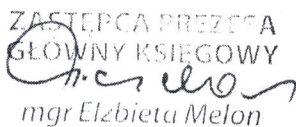 ZASTĘPCA PREZESA
GŁÓWNY KSIĘGOWY
mgr Elżbieta Melon